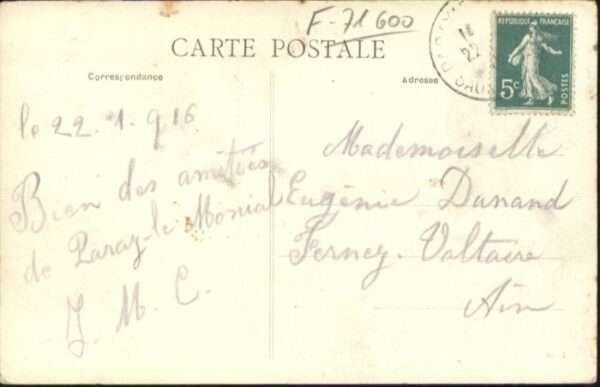 F-71600
CARTE POSTALE
RÉPUBLIQUE FRANÇAISE
5c
POSTES
Correspondance
Adresse
le 22.1.916
Bien des amitiés
de Paray-le Monial
J. M. C.
Mademoiselle
Eugénie Danand
Ferney. Voltaire
Ain